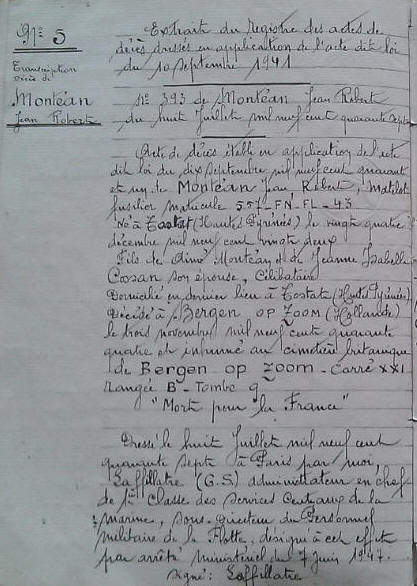 N° 5
Transcription
décès de
Montéan
Jean Robert
Extrait du registre des actes de
décès dressés en application de l'acte dit loi
du 10 septembre 1941
N° 393 de Montéan Jean Robert
du huit Juillet mil neuf cent quarante sept
Acte de décès établi en application de l'acte
dit loi du dix septembre mil neuf cent quarant
et un de Montéan Jean, Robert, Matelot
fusilier matricule 557_FN_FL_43
Né à Tostat (Hautes Pyrénées) le vingt quatre
décembre mil neuf cent vingt deux
Fils de Aimé Montéan et de Jeanne Isabelle
son épouse, Célibataire
Domicilié en dernier lieu à Tostat (Htes Pyrénées)
Décédé à Bergen op Zoom (Hollande)
le trois novembre mil neuf cent quarante
quatre et inhumé au cimetière britanique
de Bergen op Zoom - Carré XXI
rangée B - Tombe 9
"Mort pour la France"
Dressé le huit Juillet mil neuf cent
quarante sept à Paris par moi,
Laffillatre (G.S) administrateur en chef
de 1re classe des services Centraux de la
marine, sous-Directeur du Personnel
militaire de la Flotte, désigné à cet effet
par arrêté ministériel du 7 Juin 1947.
signé: Laffillatre